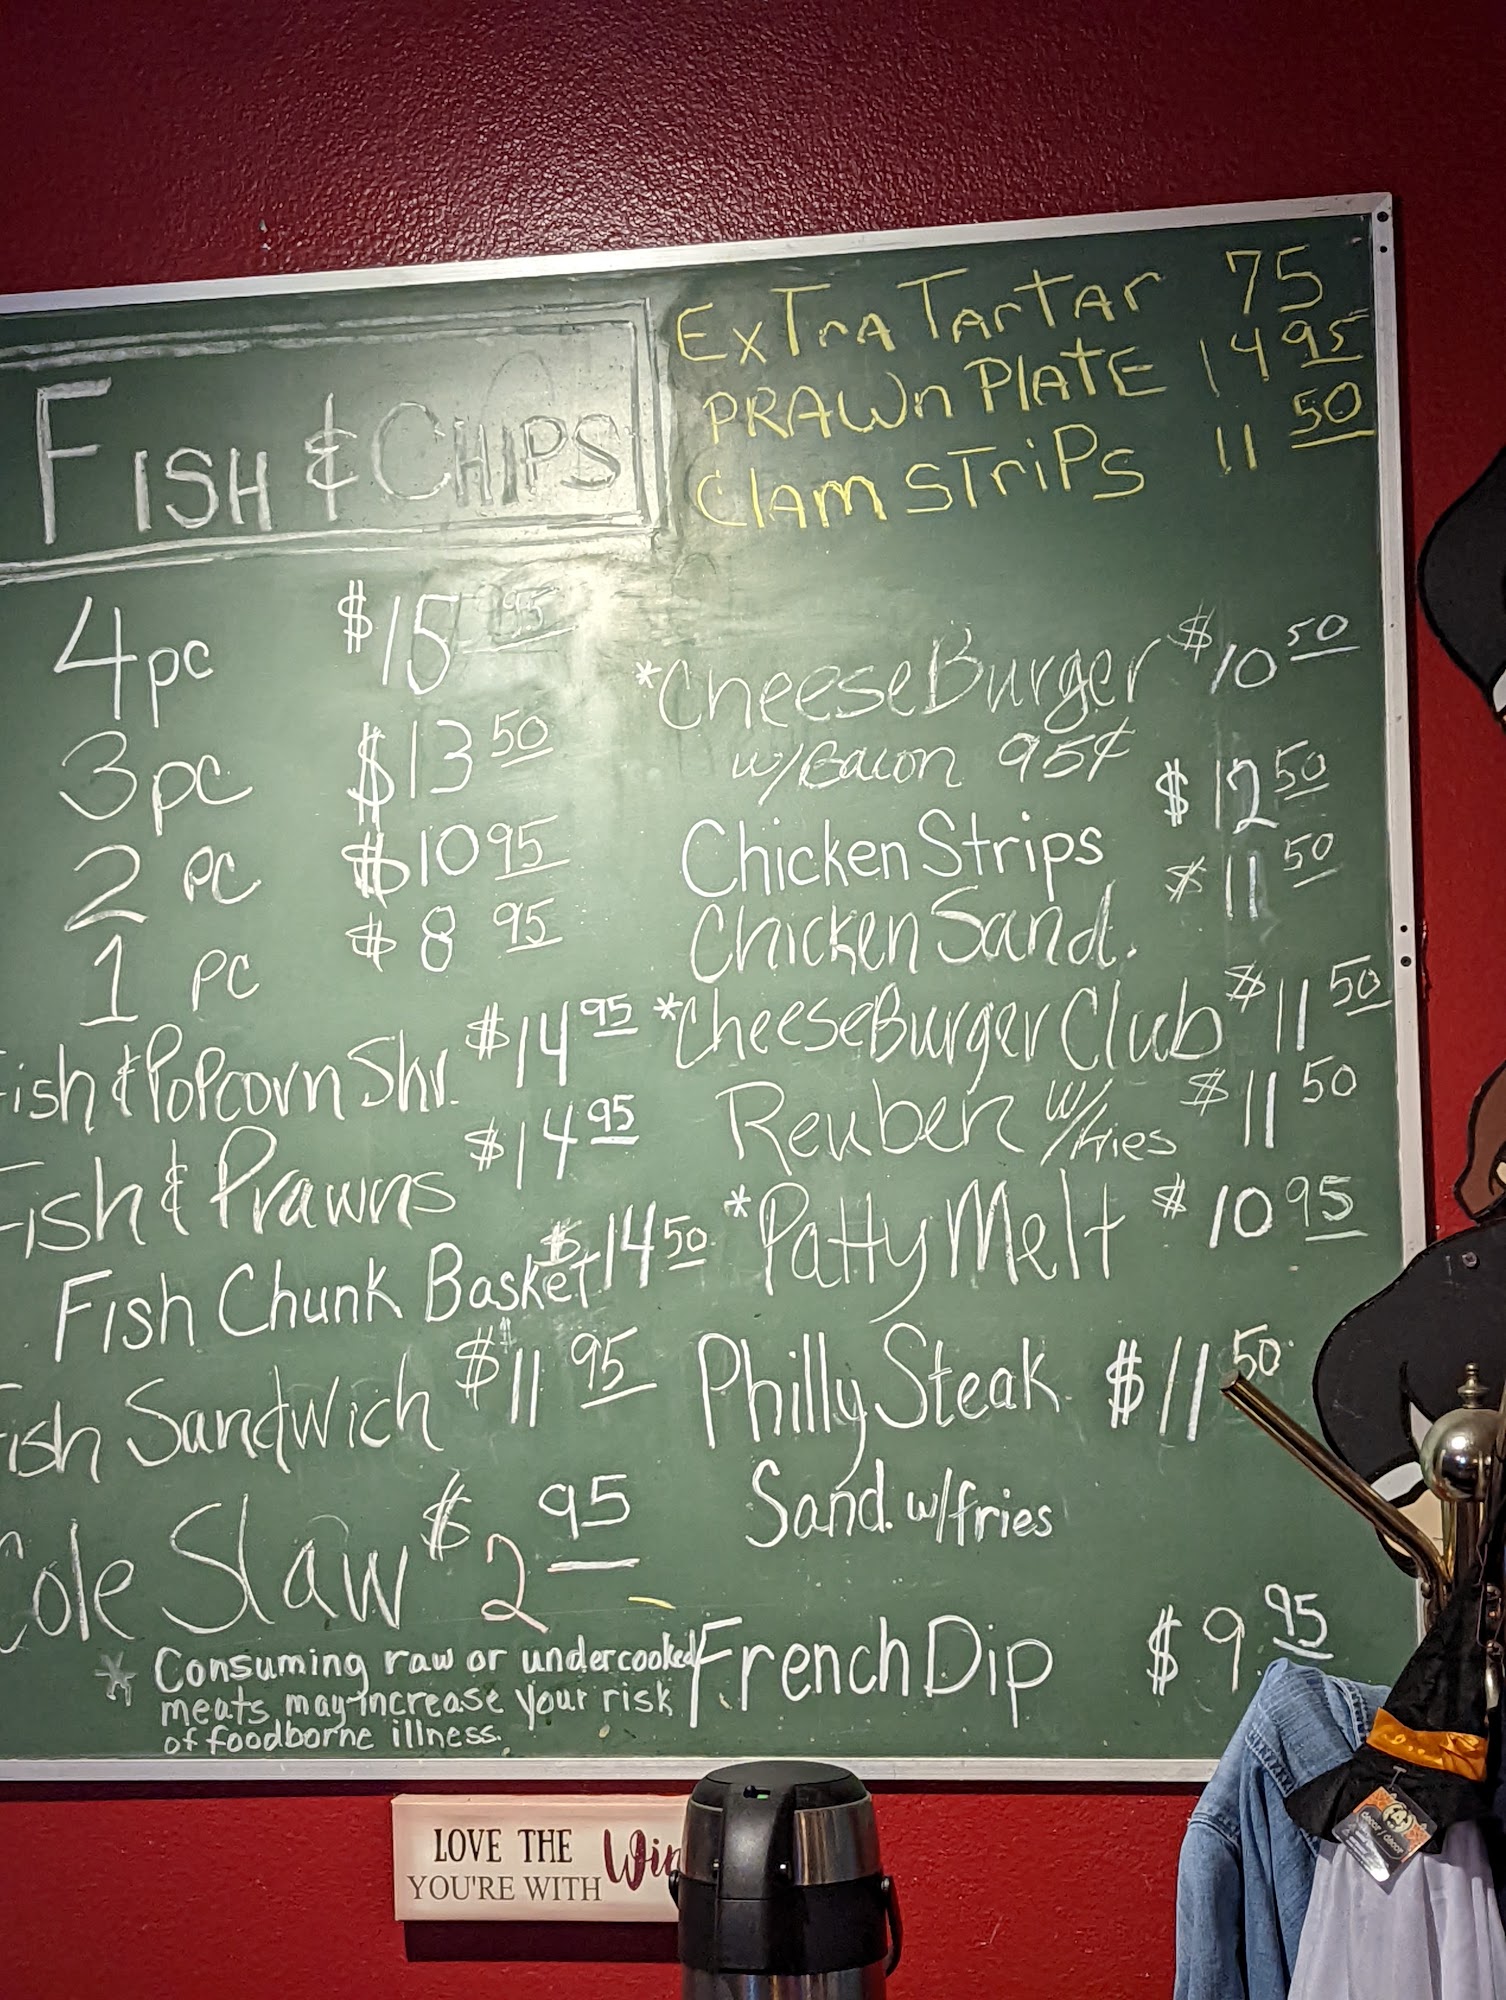 FISH & CHIPS
4pc $15 95
3pc $13 50
2 pc $10 95
1 pc $8 95
Fish & Popcorn Shr. $14 95
Fish & Prawns $14 95
Fish Chunk Basket $14 50
Fish Sandwich $11 95
Cole Slaw $2 95
* Consuming raw or undercooked
meats may increase your risk
of foodborne illness.
ExTra Tartar 75
PRAWn PlAtE 14 95
Clam STriPs 11 50
*Cheese Burger $10 50
w/Bacon 95¢
Chicken Strips $12 50
Chicken Sand. $11 50
*CheeseBurger Club $11 50
Reuben w/fries $11 50
*Patty Melt $10 95
Philly Steak $11 50
Sand. w/fries
French Dip $9 95
LOVE THE
YOU'RE WITH